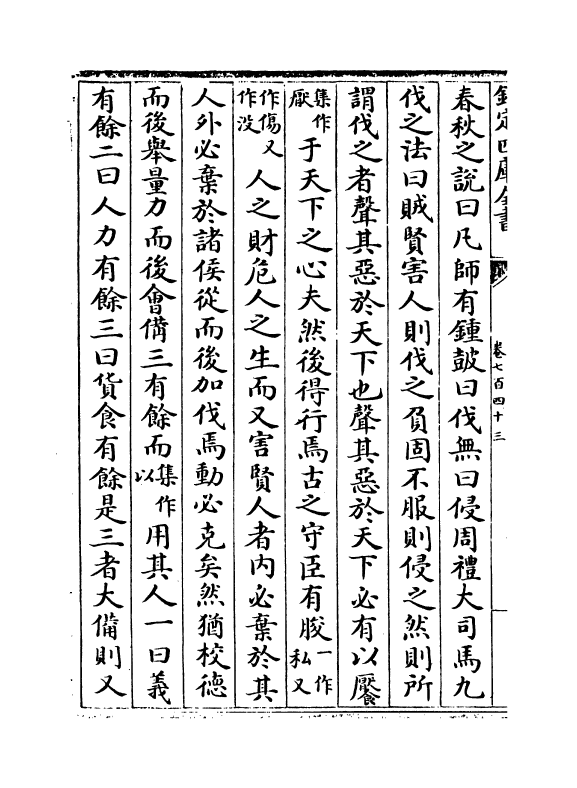 欽定四庫全書
卷七百四十三
春秋之說曰凡師有鍾鼓曰伐無曰侵周禮大司馬九
伐之法曰賊賢害人則伐之負固不服則侵之然則所
謂伐之者聲其惡於天下也聲其惡於天下必有以饜
集作厭于天下之心夫然後得行焉古之守臣有朘一作私又
作傷又作没人之財危人之生而又害賢人者內必棄於其
人外必棄於諸侯從而後加伐焉動必克矣然猶校德
而後舉量力而後會備三有餘而集作以用其人一曰義
有餘二曰人力有餘三曰貨食有餘是三者大備則又